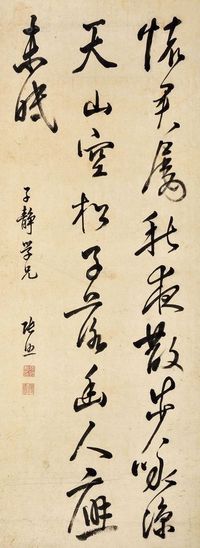 懷君屬秋夜散步咏涼
天山空松子落幽人應
未眠
子靜学兄
張照